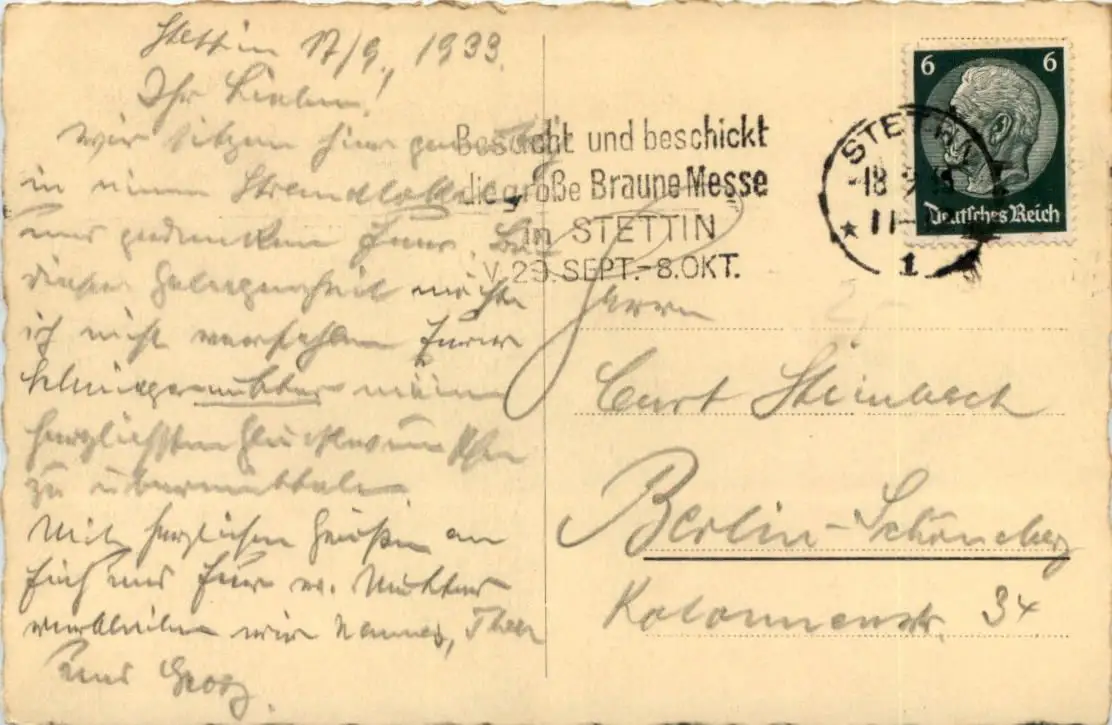 Stettin 17/9., 1933.
Ihr Lieben!
wir sitzen hier
in einem Strandlokal
und gedenken Euer. Bei
dieser Gelegenheit möchte
ich nicht verfehlen Eurer
Schwiegermutter meine
herzlichsten Glückwünsche
zu übermitteln.
Mit herzlichen Grüßen an
Euch und Eure w. Mutter
verbleiben wir
und Georg.
Besucht und beschickt
die große Braune Messe
in STETTIN
V. 29. SEPT.-8. OKT.
STETTIN
18 9
11
* 1
6 6
Deutsches Reich
Herrn
Curt Steinbach
Berlin-Schöneberg
Kolonnenstr. 34